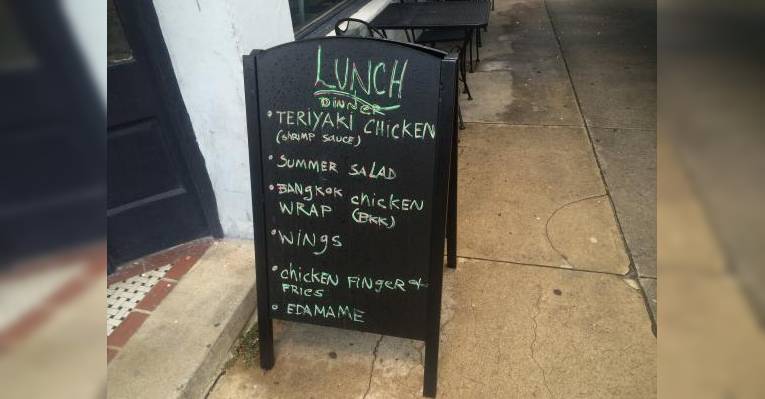 LUNCH
DINNER
• TERIYAKI CHICKEN
(SHRIMP SAUCE)
• SUMMER SALAD
• BANGKOK chicKEN
WRAP (BKK)
• WINgS
• chicKEN FINgER &
FRiES
• EDAMAME